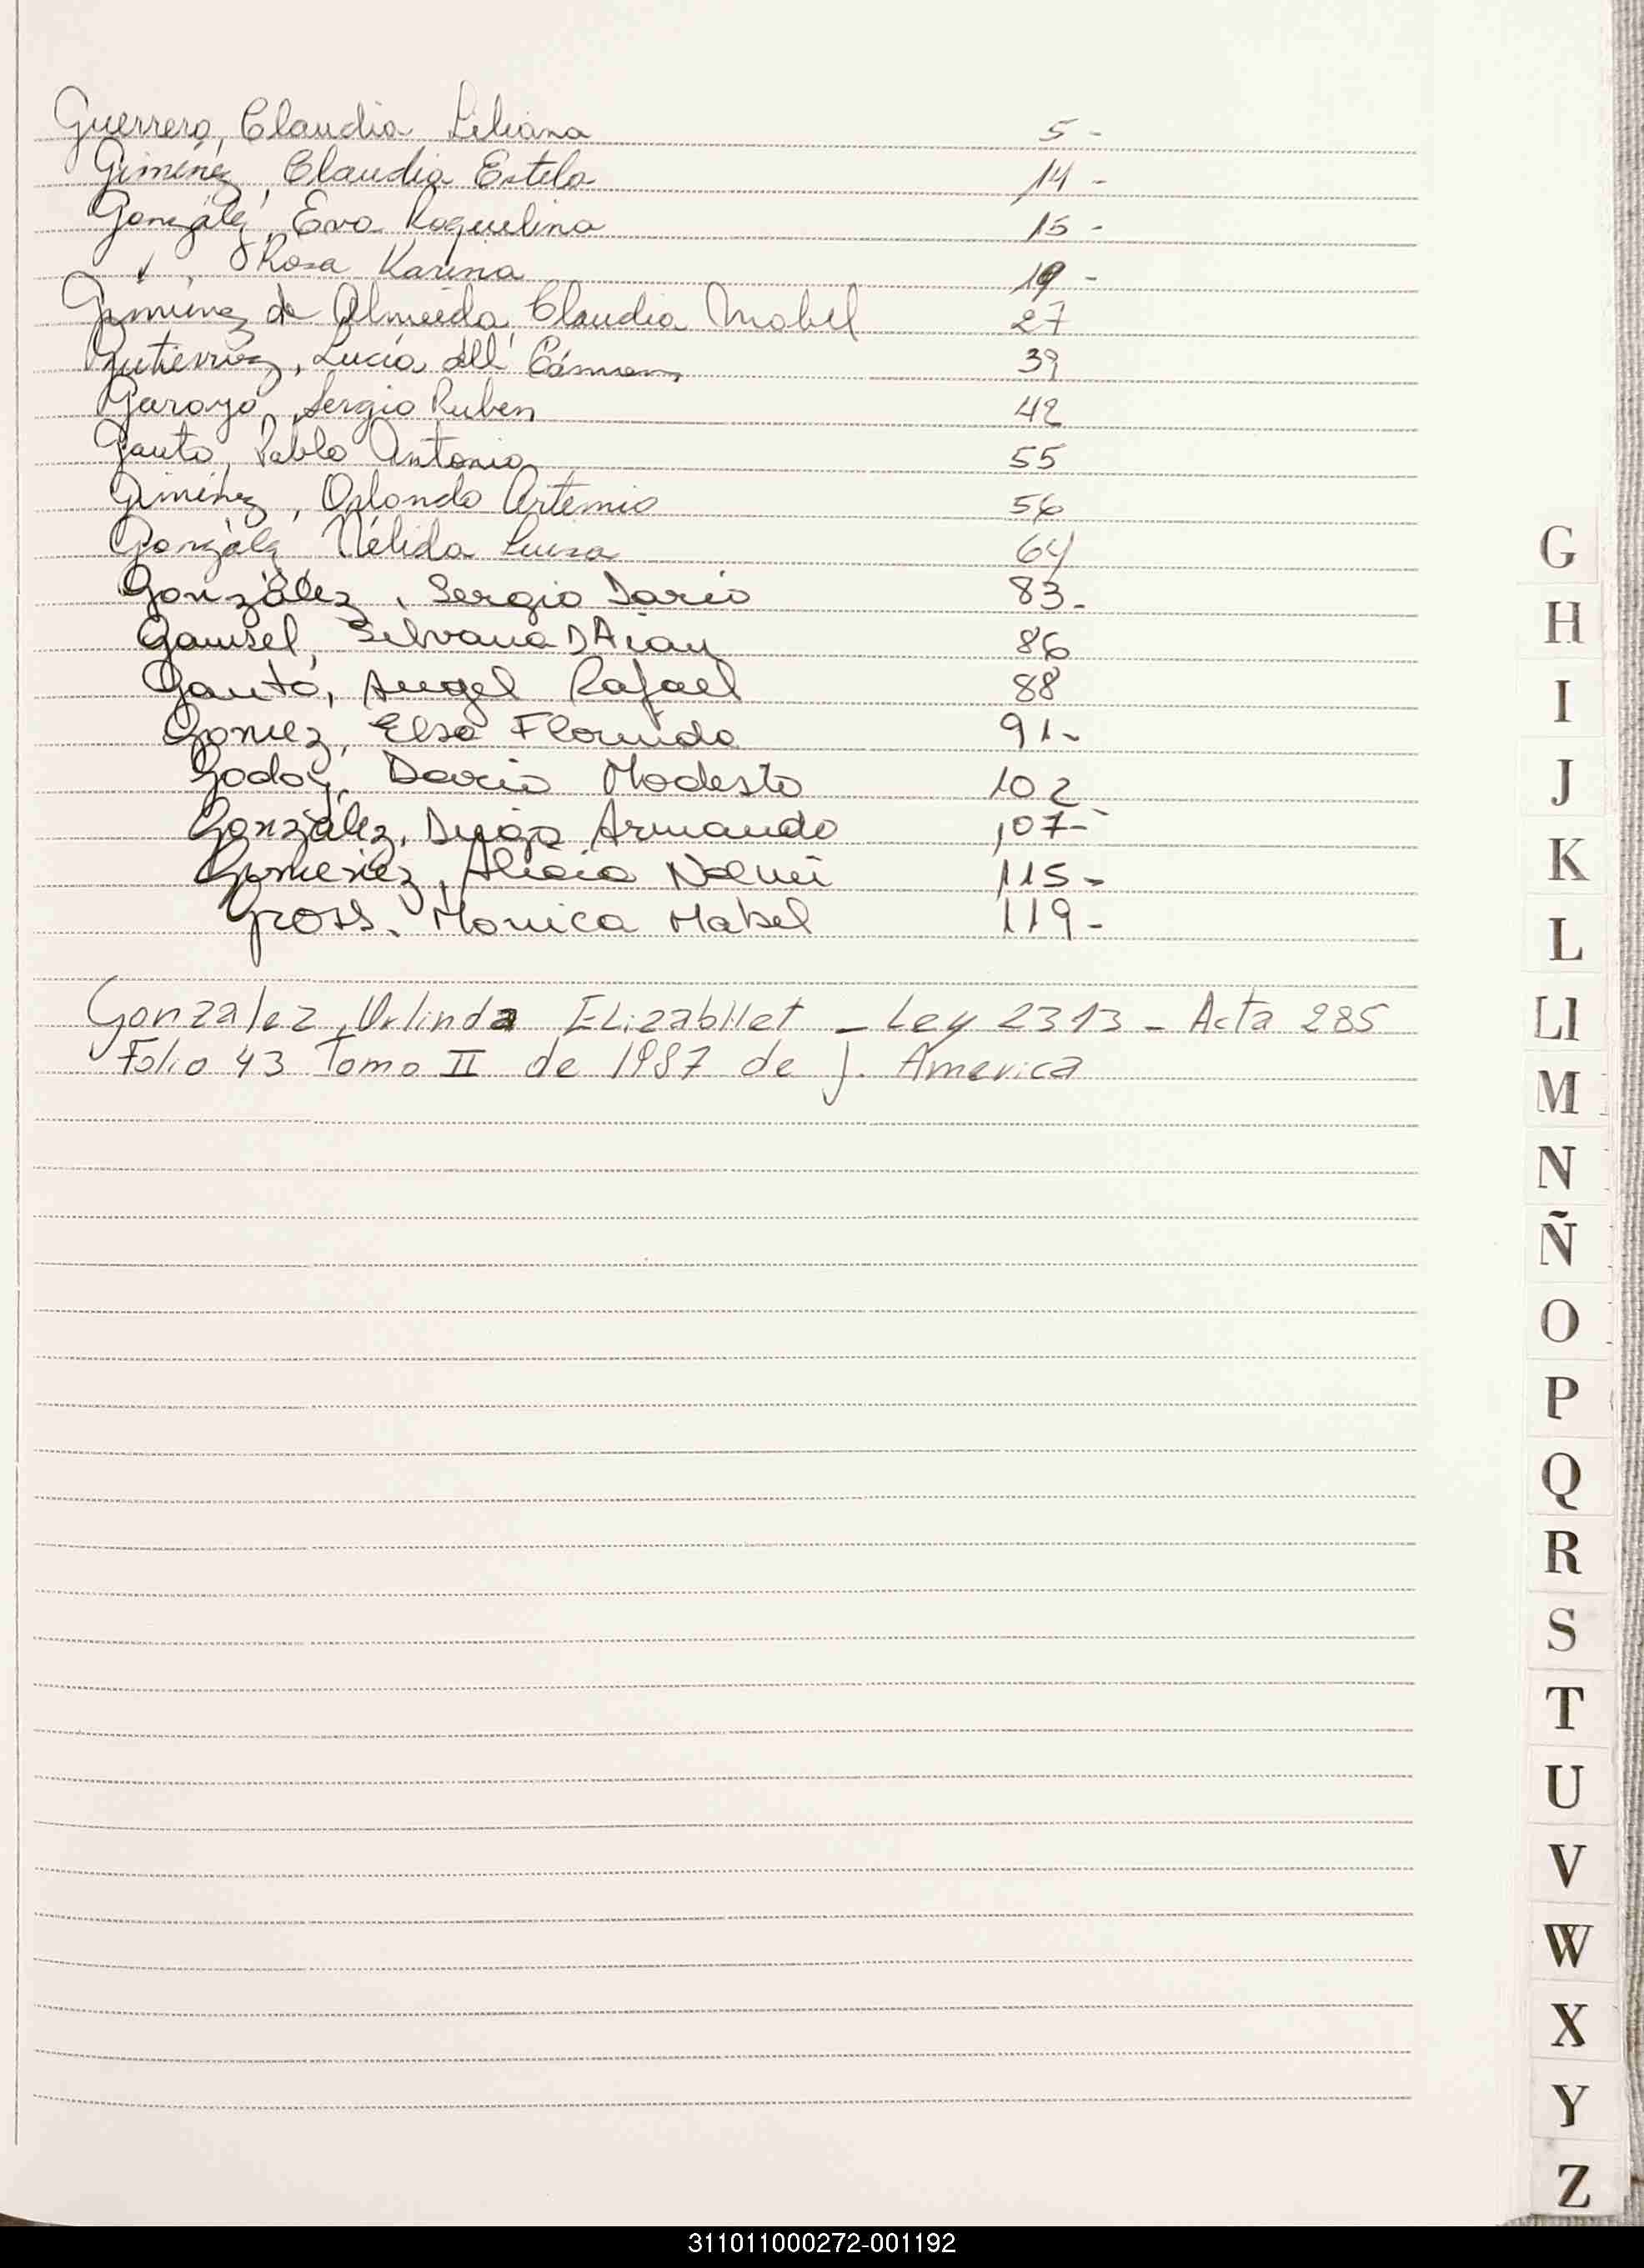 Guerrero, Claudia Liliana 5 -
Gimenez, Claudia Estela 14 -
González, Eva Raquelina 15 -
Rosa Karina 19 -
Gimenez de Almeida, Claudia Mabel 27
Gutierrez, Lucía del Cármen 39
Garayo, Sergio Ruben 42
Gauto, Pablo Antonio 55
Giménez, Orlando Artemio 56
González Nélida Luisa 64
González, Sergio Dario 83-
Silvana 86
Gauto, Angel Rafael 88
Gomez, Elsa Florinda 91-
Godoy, Dario Modesto 102
González, Diego Armando 107-
Alicia Noemí 115-
Gross, Monica Mabel 119-
Gonzalez, Urlinda ELizabllet - Ley 2313 - Acta 285
Folio 43 Tomo II de 1987 de J. America
G
H
I
J
K
L
Ll
M
N
Ñ
O
P
Q
R
S
T
U
V
W
X
Y
Z
311011000272-001192